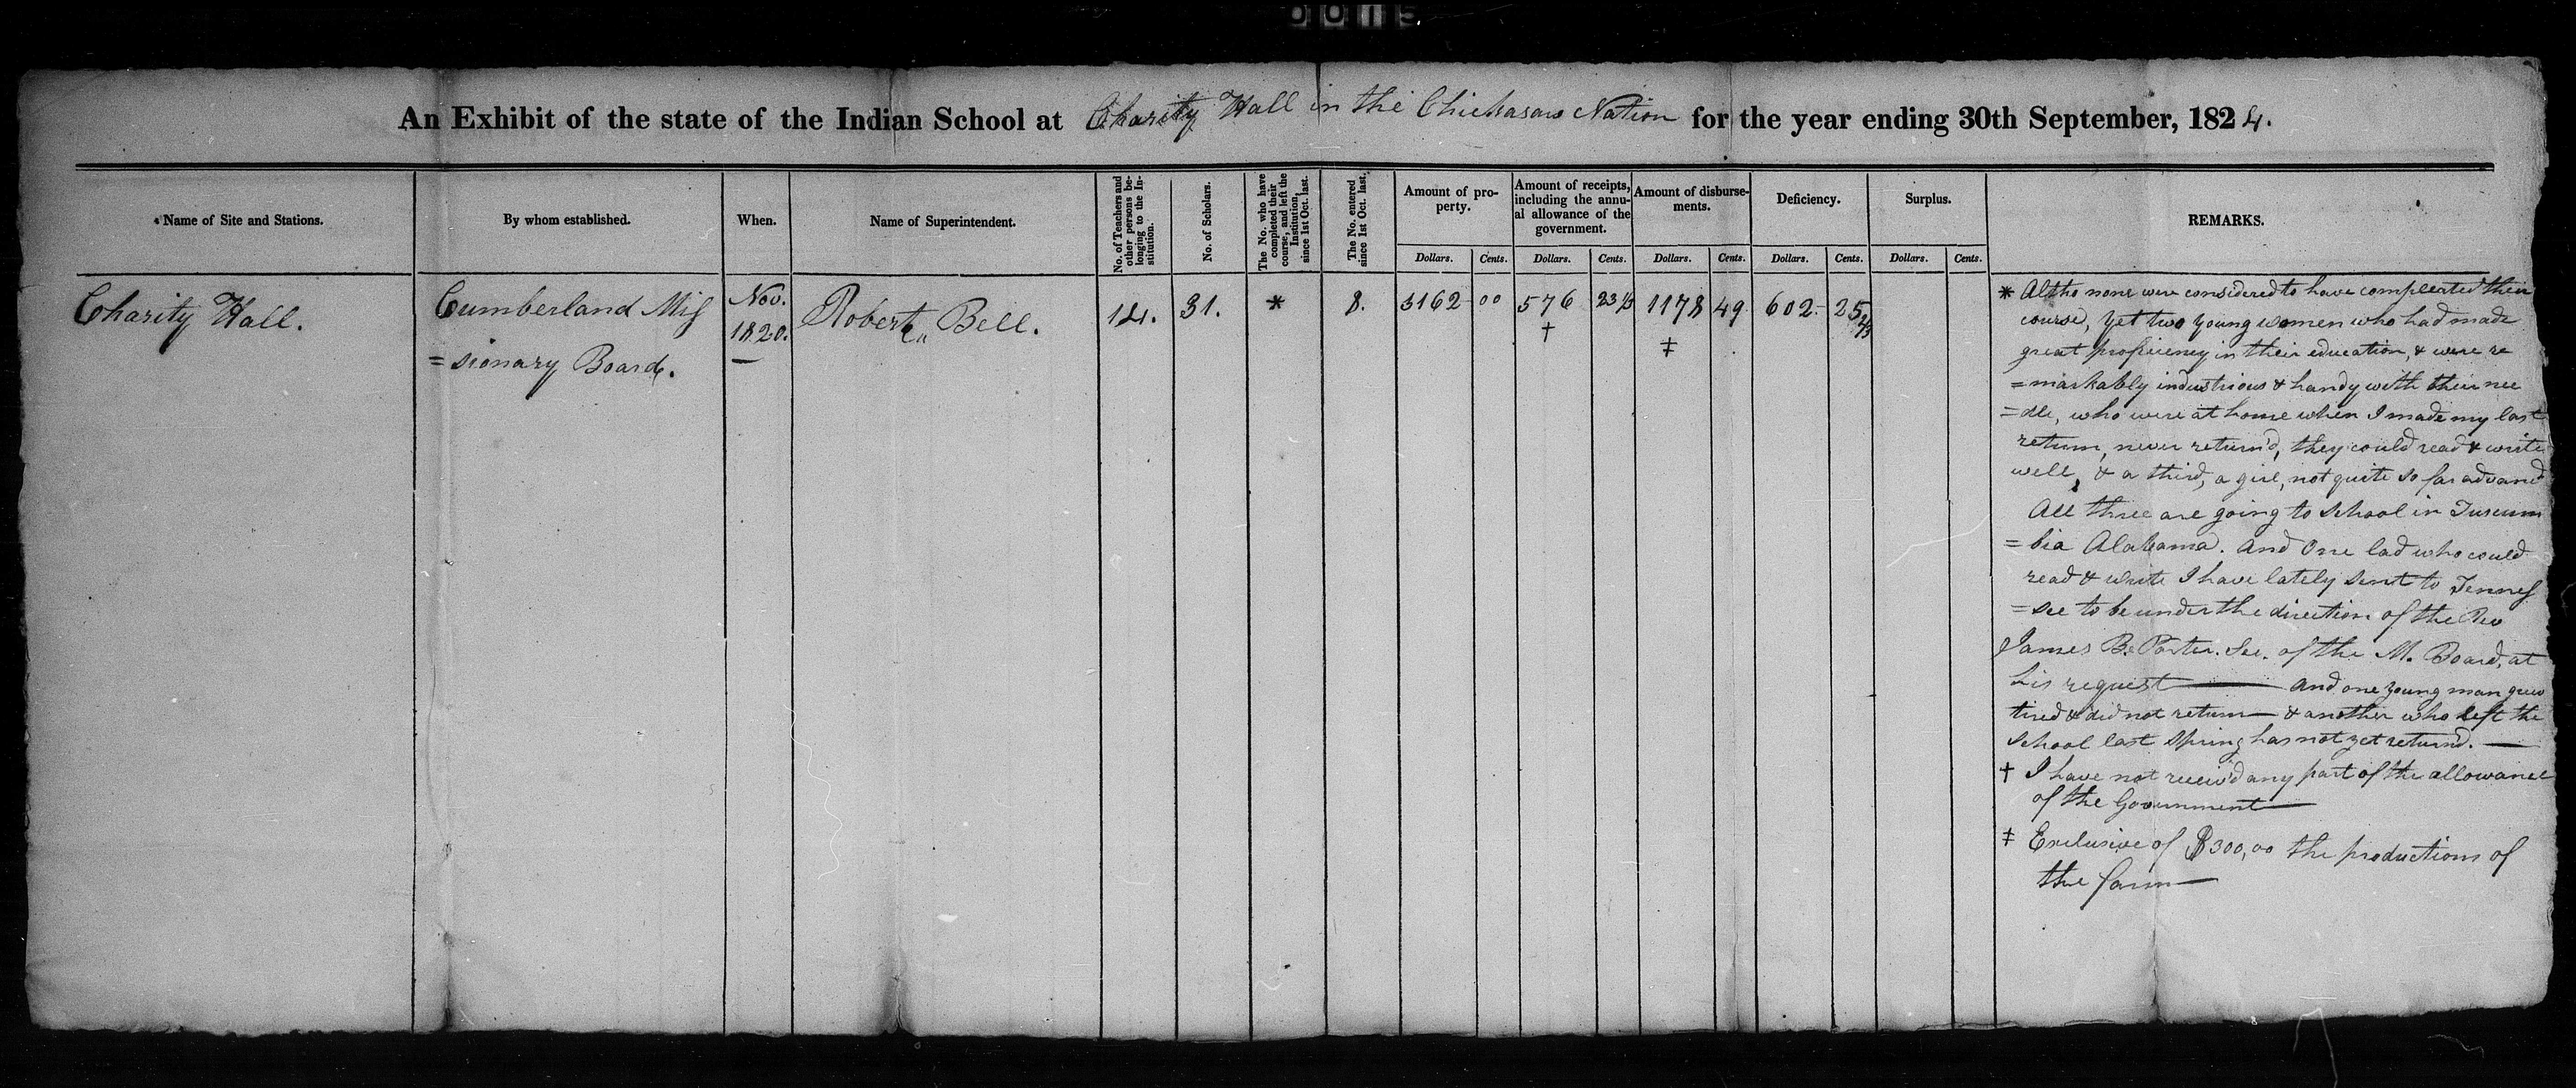 0015
An Exhibit of the state of the Indian School at Charity Hall in the Chickasaw Nation for the year ending 30th September, 1824.
Name of Site and Stations.
By whom established.
When.
Name of Superintendent.
No. of Teachers and other persons belonging to the Institution.
No. of Scholars.
The No. who have completed their course, and left the Institution, since 1st Oct. last.
The No. entered since 1st Oct. last.
Amount of property.
Amount of receipts, including the annual allowance of the government.
Amount of disbursements.
Deficiency.
Surplus.
REMARKS.
Dollars. Cents. Dollars. Cents. Dollars. Cents. Dollars. Cents. Dollars. Cents.
Charity Hall.
Cumberland Mis
=sionary Board.
Nov.
1820.
Robert Bell.
14.
31.
*
8.
3162 00
576 23 1/3
†
1178 49
‡
602 25 2/3
* Altho none were considered to have compleeted their
course, yet two young women who had made
great proficiency in their education, & were re
=markably industrious & handy with their nee
=dle, who were at home when I made my last
return, never return'd, they could read & write
well, & a third, a girl, not quite so far advanc'd
All three are going to school in Tuscum
=bia Alabama. And One lad who could
read & write I have lately sent to Tennes
=see to be under the direction of the Rev
James B. Porter. Sec. of the M. Board, at
his request — and one young man grew
tired & did not return — & another who left the
school last spring has not yet return'd. —
† I have not receiv'd any part of the allowance
of the Government —
‡ Exclusive of $300,00 the productions of
the farm —